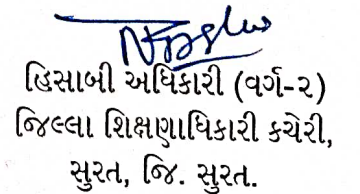 હિસાબી અધિકારી (વર્ગ-૨)
જિલ્લા શિક્ષણાધિકારી કચેરી,
સુરત, જિ. સુરત.